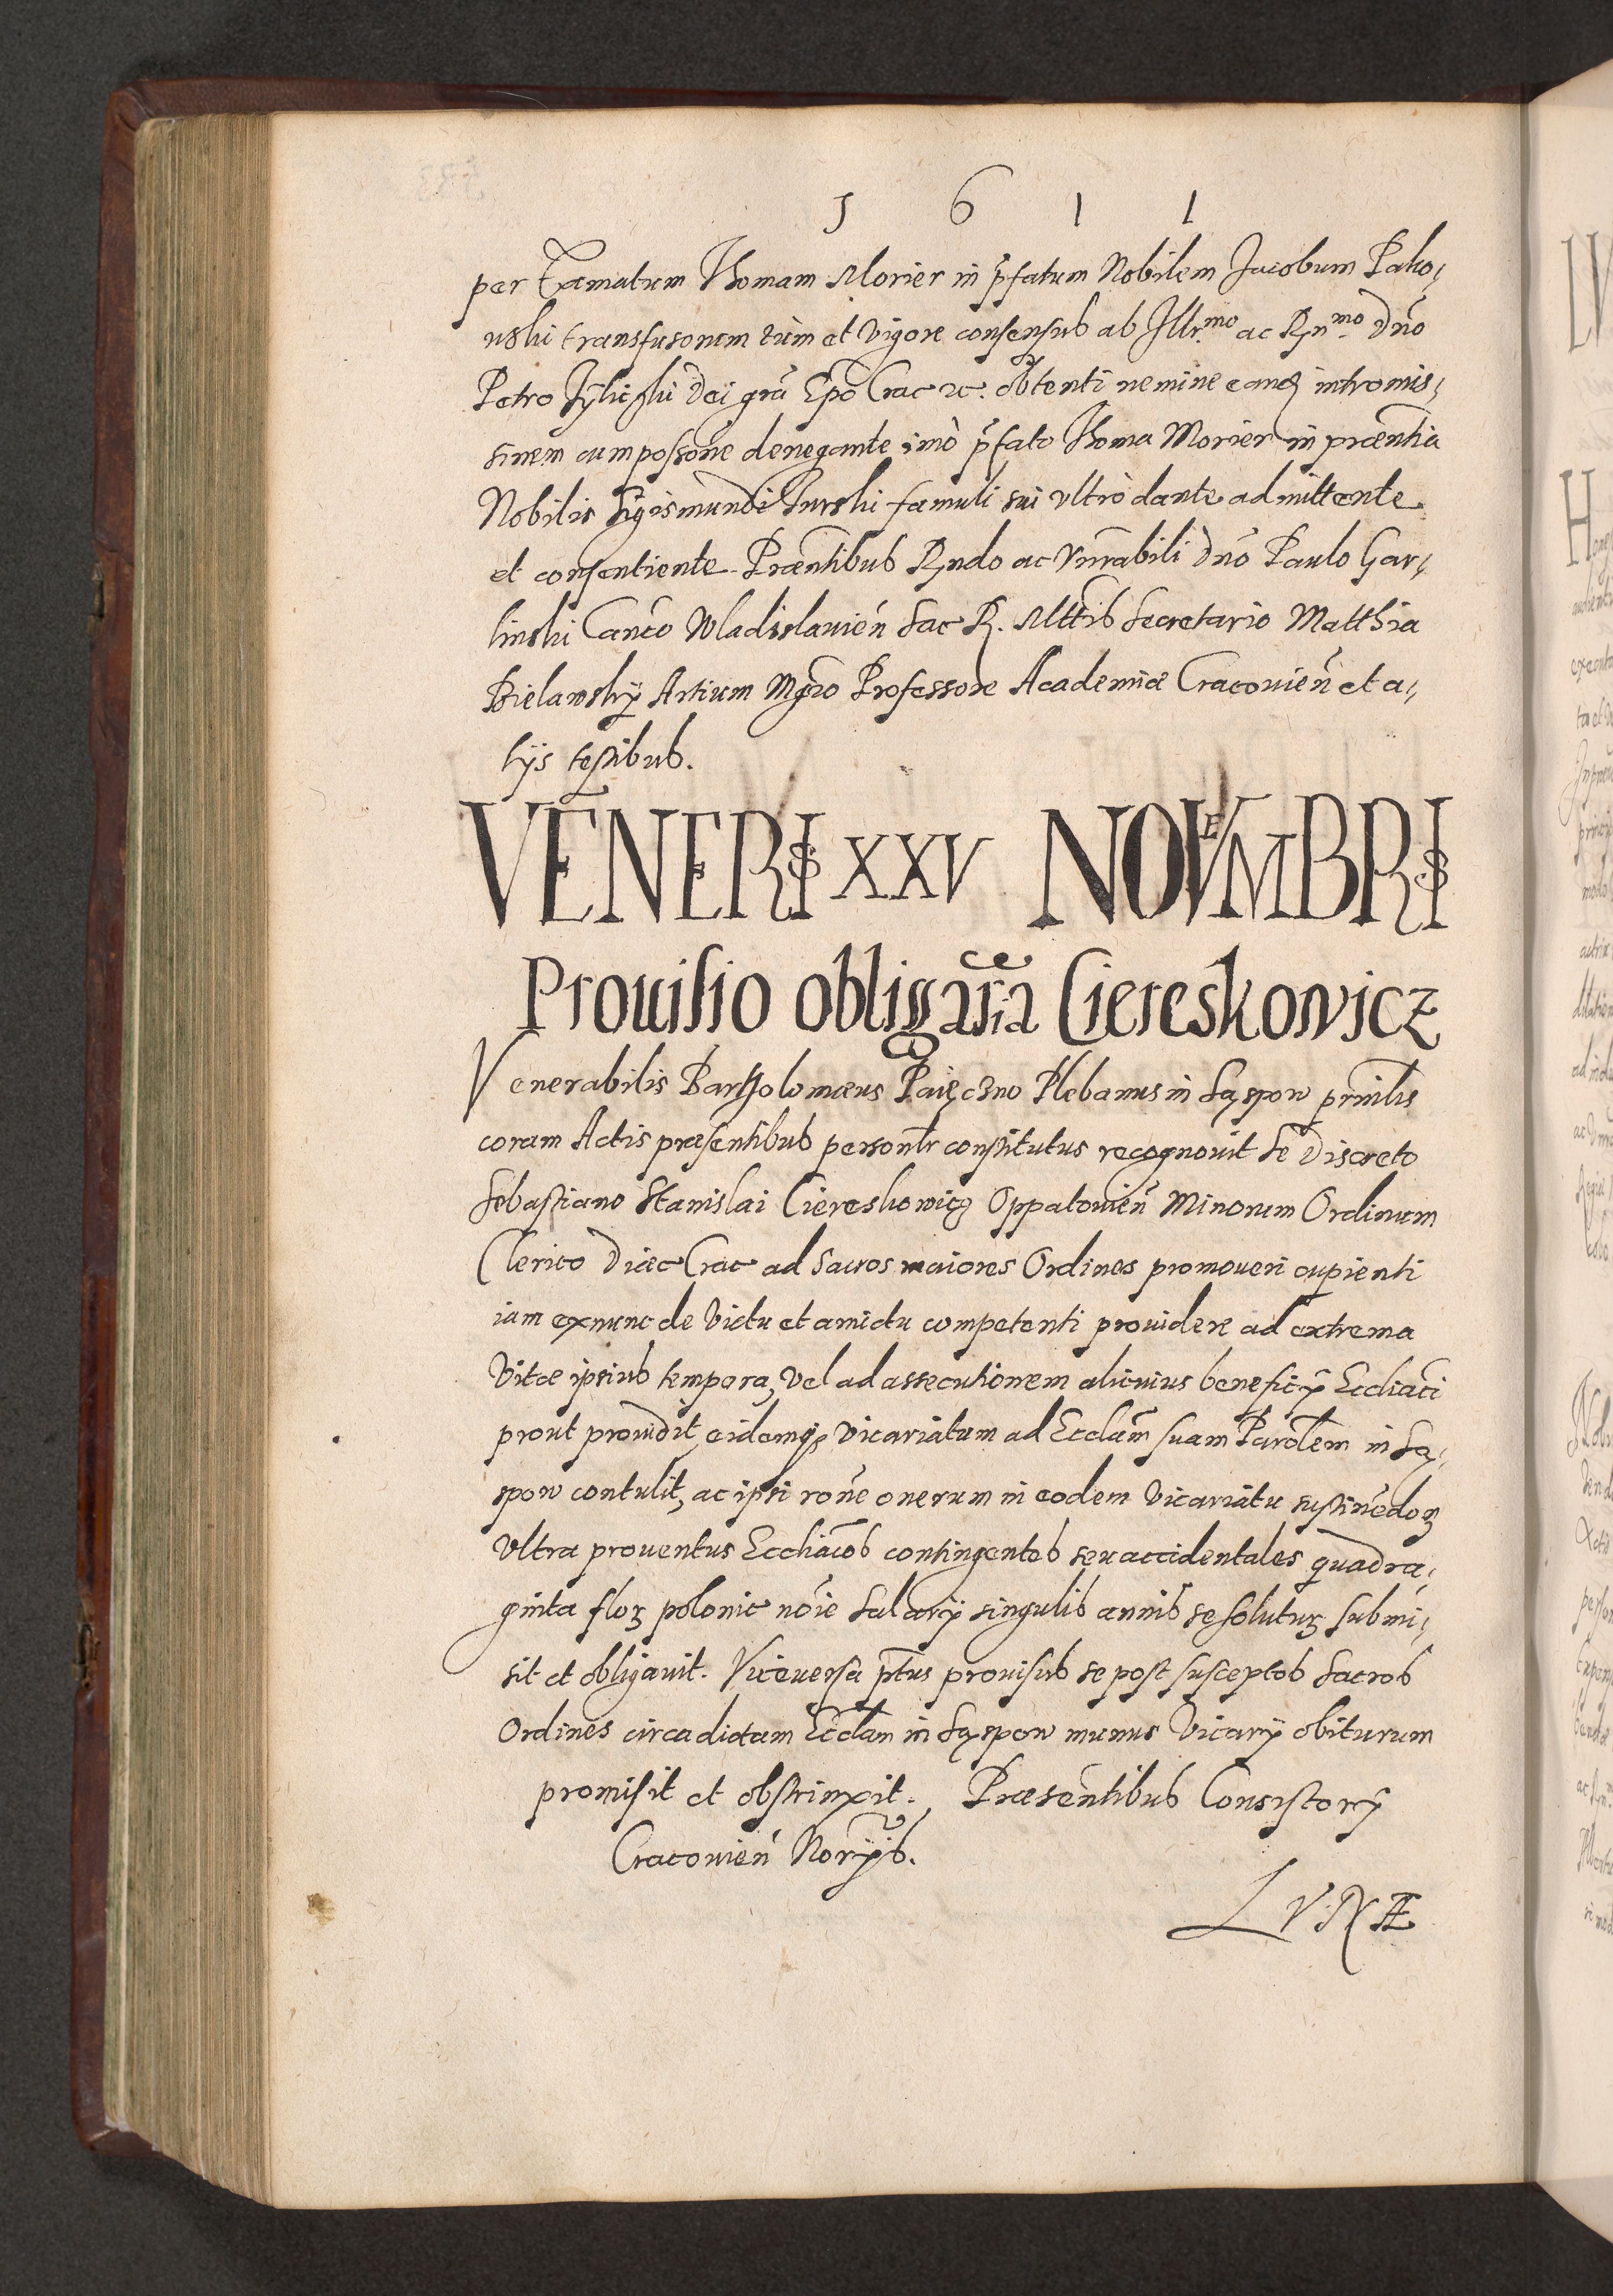 1 6 1 1
per Famatum Thomam Morier in p̃fatum Nobilem Jacobum Pako-
wski transfusonem tùm et vigore consensus ab Illr.mo ac Rn.mo Dño
Petro Tylicski Dei grã Epõ Crac etc. obtenti nemine eandz intromis-
sinem cum possone denegante imò p̃fato Thoma Morier in praentia
Nobilis Sigismundi Turski famuli sui ultrò dante admittente
et consentiente. Praentibus Rndo ac Vnrabili Dño Paulo Gar-
linski Canco Wladislauien Sac R. Mttis Secretario Matthia
Bielawsky Artium Mgro Professore Academiæ Cracouien et a-
lijs testibus.
VENERIS XXV NOVEMBRIS
Prouisio obligaria Ciereskowicz
Venerabilis Bartholomæus Paięczno Plebanus in Sąspow prinlis
coram Actis præsentibus personlr constitutus recognouit se Discreto
Sebastiano Stanislai Ciereskowicz Oppatouien Minorum Ordinum
Clerico Diæc Crac ad sacros maiores Ordines promoueri cupienti
iam exnunc de victu et amictu competenti prouidere ad extrema
vitæ ipsius tempora, vel ad assecutionem alicuius beneficij Eccliaci
prout prouidit, eidemq; vicariatum ad Ecclam suam Parolem in Są-
spow contulit, ac ipsi rone onerum in eodem vicariatu sustinedoz
vltra prouentus Eccliacos contingentes seu accidentales quadra-
ginta floz polonic noie Salarij singulis annis se soluturz submi-
sit et obligauit. Viceuersa ptus prouisus se post susceptos sacros
Ordines circa dictam Ecclam in Sąspow munus vicarij obiturum
promisit et obstrinxit. Præsentibus Consistorij
Cracouien Norijs.
LVNÆ